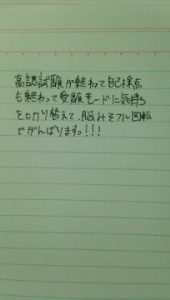 高認試験が終わって自己採点
も終わって受験モードに気持ち
をとかり替えて、脳みそフル回転
でがんばりますっ!!!